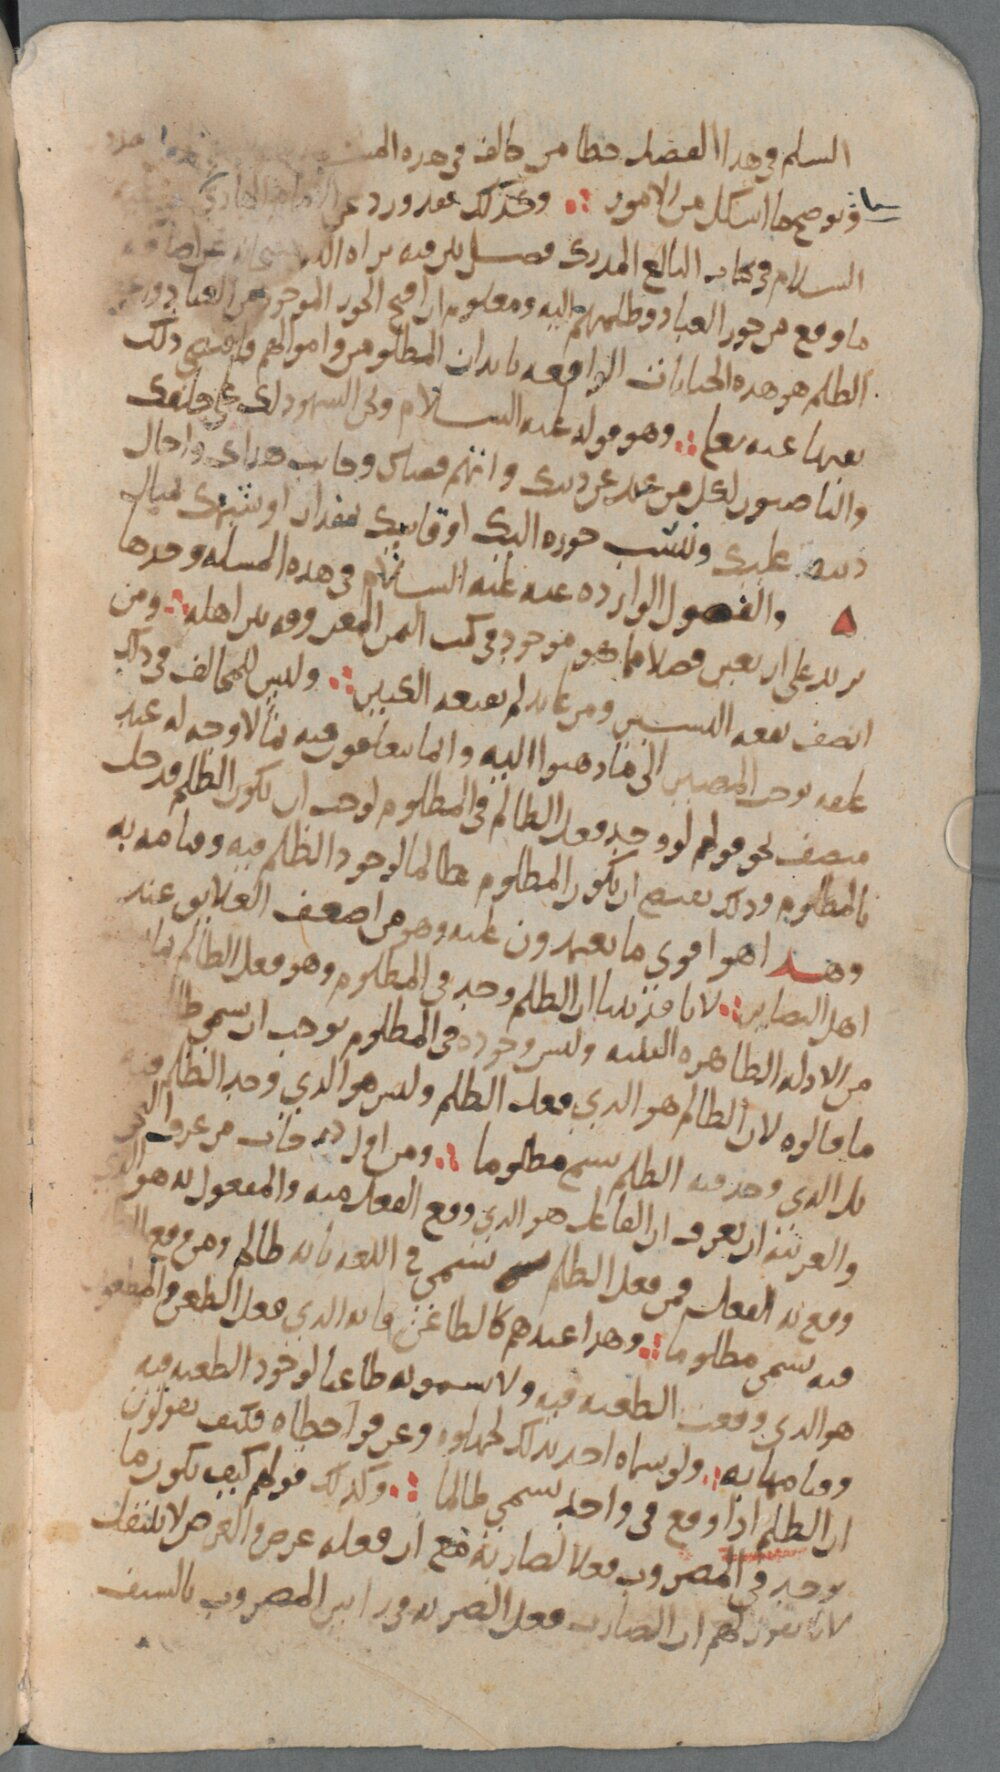 السلم وهدا الفصل خطا من خالف في هده
وتوضح ما اشكل من الامور وكذلك فقد ورد عن الامام الهادي
السلام في كتاب البالغ المدرك فصل بين فيه براه الله سبحانه
ما وقع من جور العباد وظلمهم اليه ومعلوم ان اقبح الجور الموجود من العباد
الظلم هو هده الجنايات الواقعه بابدان المظلومين واموالهم وقد نفى دلك
نفيها عنه تعلى وهو قوله عليه السلام ونحن الشهود لك على خلقك
والناصبون لكل من عند عن دينك وانتهم قضاك وجانب هداك واحال
دنبه عليك ونسب جوره اليك او قاسك بمقدار او شبهك بمثال
والفصول الوارده عنه عليه السلام في هده المسله وحدها
تزيد على اربعين فصلا مما هو موجود في كتب اليمن المعروفه بين اهله ومن
انصف نفعه اليسير ومن عاند لم ينفعه الكثير وليس للمخالف في دلك
علقه توجب المصير الى ما دهبوا اليه وانما يتعلقون فيه بما لا وجه له عند
منصف نحو قولهم لو وجد فعل الظالم في المظلوم لوجب ان يكون الظلم قد حل
بالمظلوم ودلك يقتضي ان يكون المظلوم ظالما لوجود الظلم فيه وقيامه به
وهدا هو اقوى ما يعتمدون عليه وهو من اضعف العلايق عند
اهل البصاير لانا قد بينا ان الظلم وجد في المظلوم وهو فعل الظالم بما
من الادله الظاهره البينه وليس وجوده في المظلوم يوجب ان يسمى
ما قالوه لان الظالم هو الدي فعل الظلم وليس هو الدي وجد الظلم فيه
بل الدي وجد فيه الظلم يسمى مظلوما ومن اول درجات من عرف
والعربيه ان يعرف ان الفاعل هو الدي وقع الفعل منه والمفعول به هو الدي
وقع به الفعل فمن فعل الظلم يسمى في اللغه بانه ظالم ومن وقع
فيه يسمى مظلوما وهدا عندهم كالطاعن فانه الدي فعل الطعن والمطعون
هو الدي وقعت الطعنه فيه ولا يسمونه طاعنا لوجود الطعنه فيه
وقيامها به ولو سماه احد بدلك لجهلوه وعرفوا خطاه فكيف يقولون
ان الظلم ادا وقع في واحد يسمى ظالما وكدلك قولهم كيف يكون ما
يوجد في المضروب فعلا لضاربه مع ان فعله عرض والعرض لا ينتقل
لانا نقول لهم ان الضارب فعل الضربه في راس المضروب بالسيف